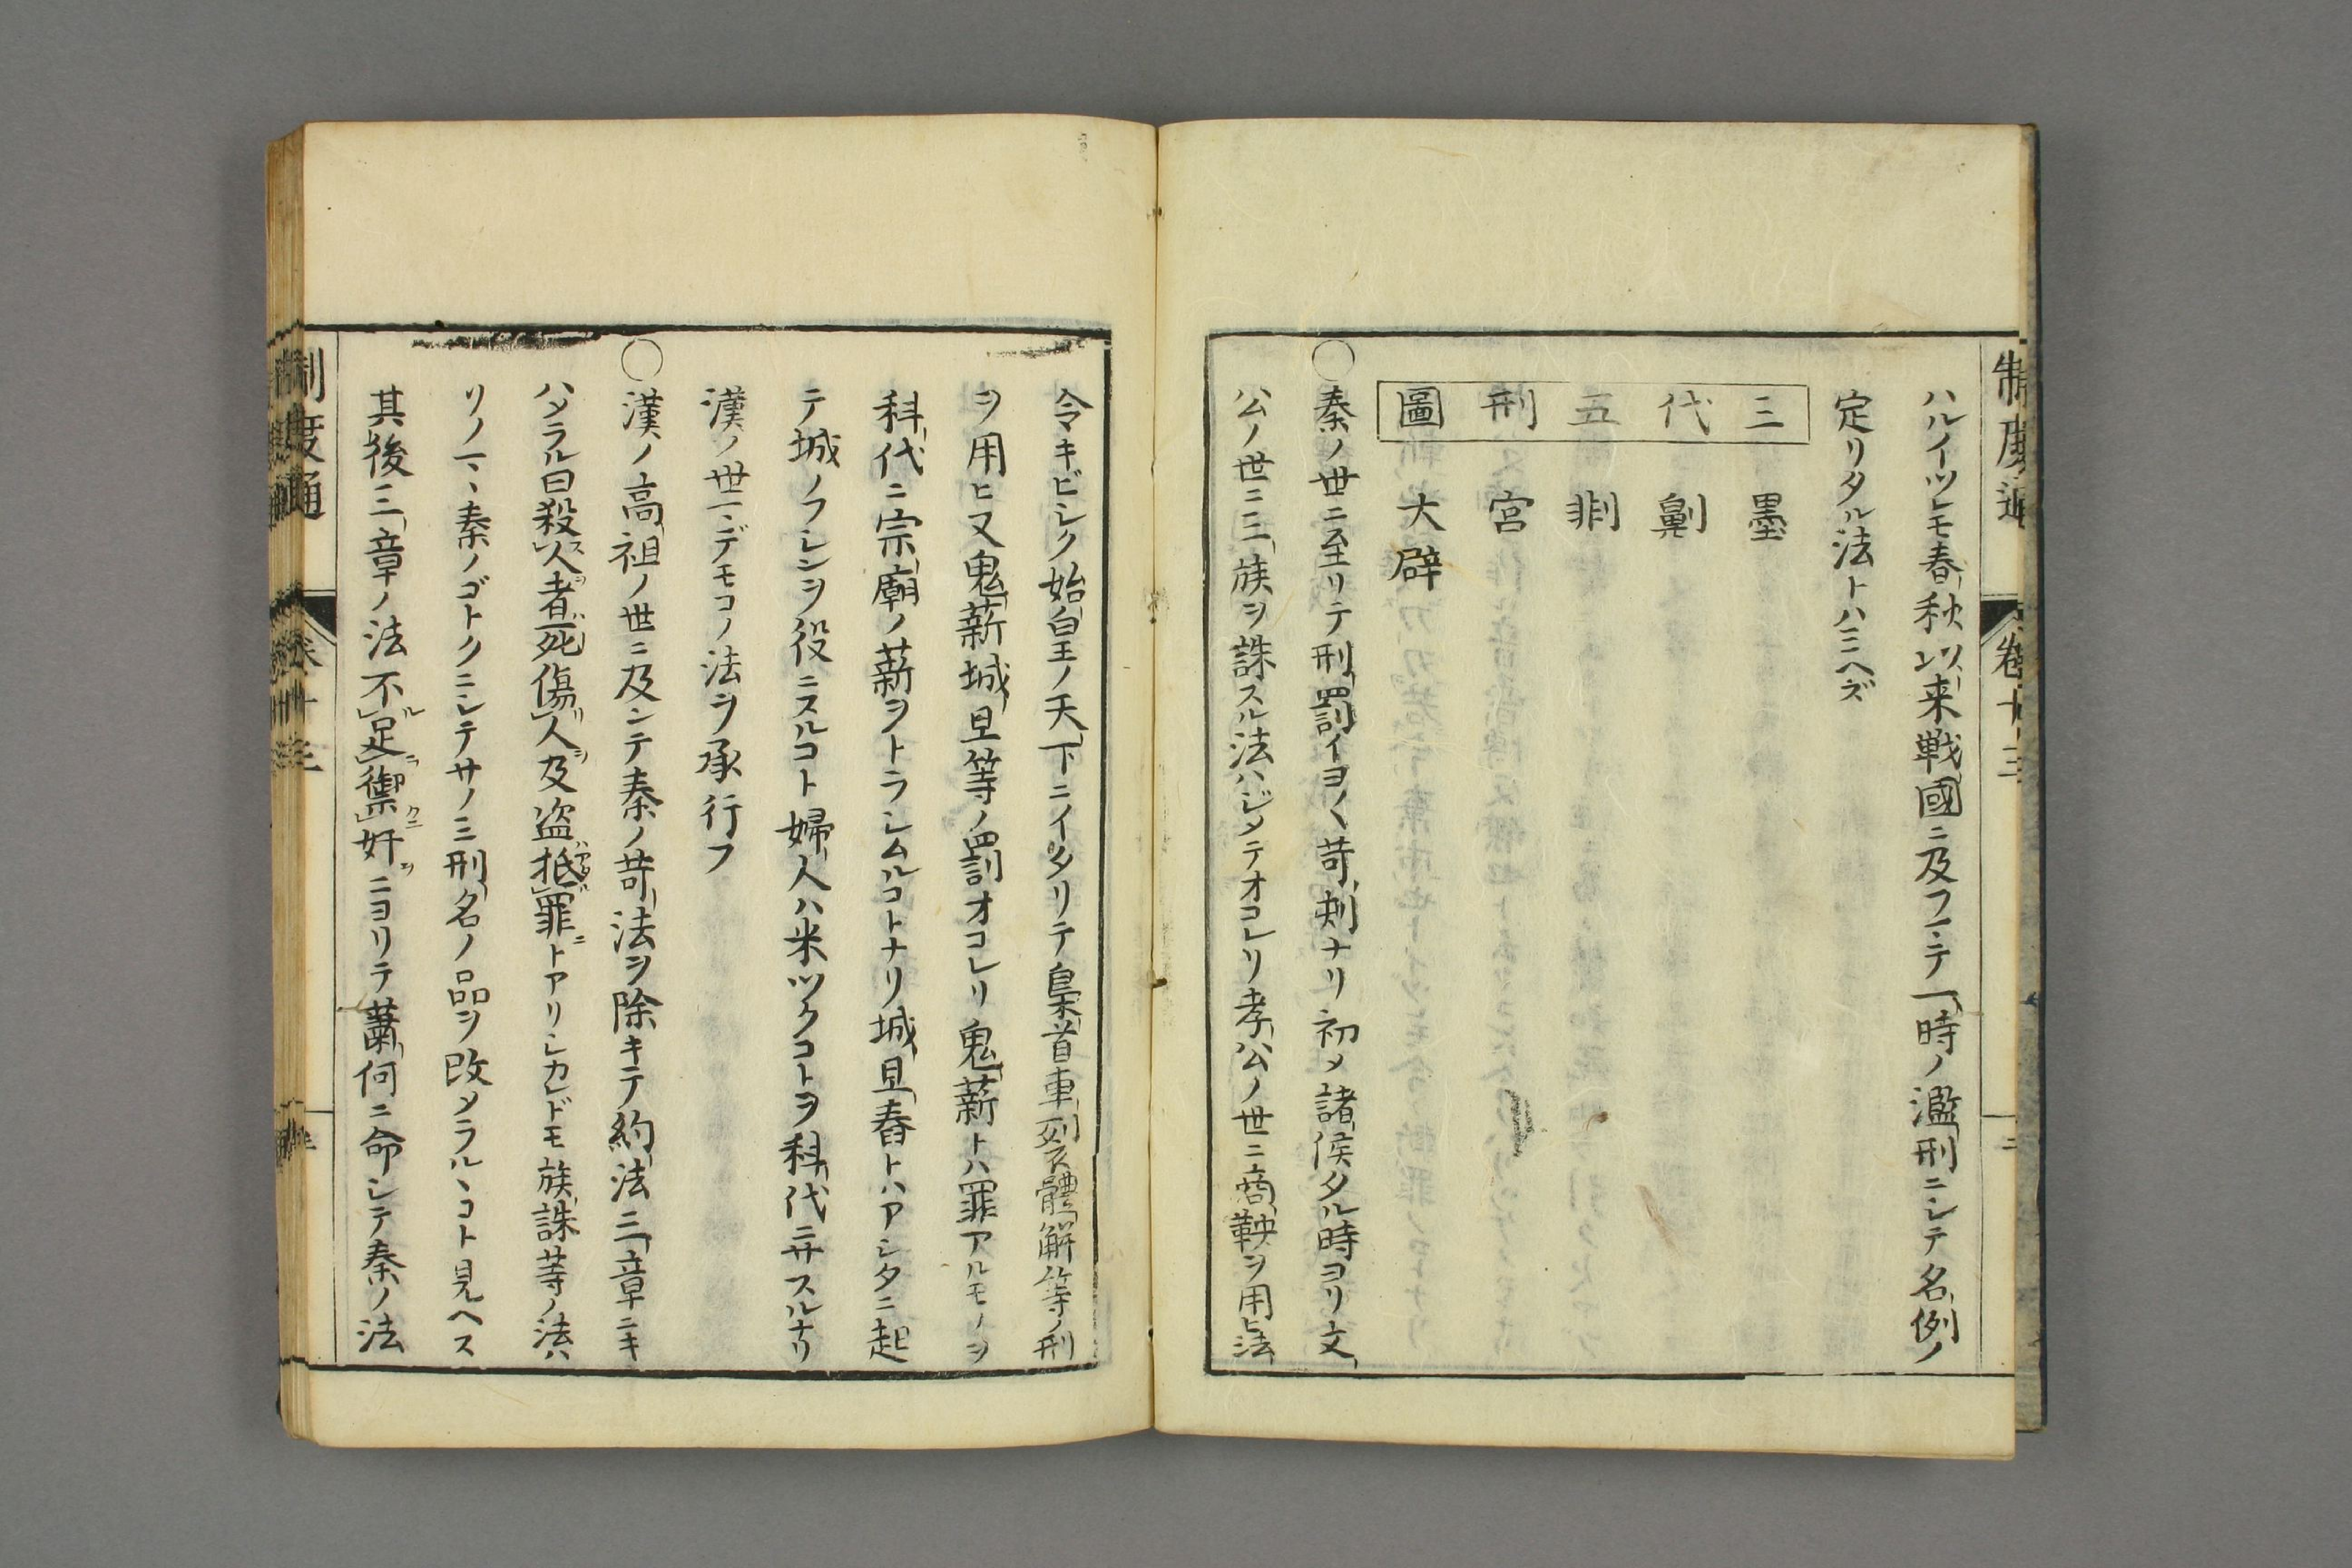 制度通 卷十三 二
ハルイツレモ春秋以来戦國ニ及フマテ一時ノ濫刑ニシテ名例ノ
定リタル法トハミヘズ
三代五刑圖
墨
劓
剕
宮
大辟
○秦ノ世ニ至リテ刑罰イヨ〱苛刻ナリ初メ諸侯タル時ヨリ文
公ノ世ニ三族ヲ誅スル法ハジメテオコレリ孝公ノ世ニ商鞅ヲ用ヒ法
令キビシク始皇ノ天下ニイタリテ梟首車裂體解等ノ刑
ヲ用ヒ又鬼薪城旦等ノ罰オコレリ鬼薪トハ罪アルモノヲ
科代ニ宗廟ノ薪ヲトラシムルコトナリ城旦舂トハアシタニ起
テ城ノフシンヲ役ニスルコト婦人ハ米ツクコトヲ科代ニサスルナリ
漢ノ世マデモコノ法ヲ承行フ
○漢ノ高祖ノ世ニ及ンテ秦ノ苛法ヲ除キテ約法三章ニキ
ハメラル曰殺人者死傷人及盗抵罪トアリシカレドモ族誅等ノ法ハ
リノマヽ秦ノゴトクニシテサノミ刑名ノ品ヲ改メラルヽコト見ヘス
其後三章ノ法不足禦奸ニヨリテ蕭何ニ命シテ秦ノ法
制度通 卷十三